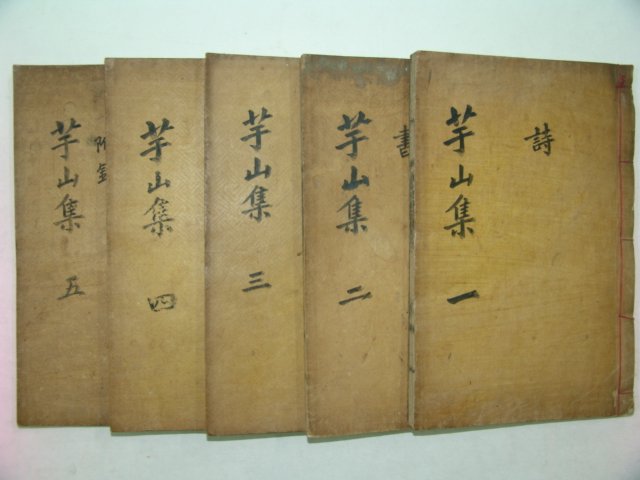 詩
芋山集 一
書
芋山集 二
芋山集 三
芋山集 四
附錄
芋山集 五